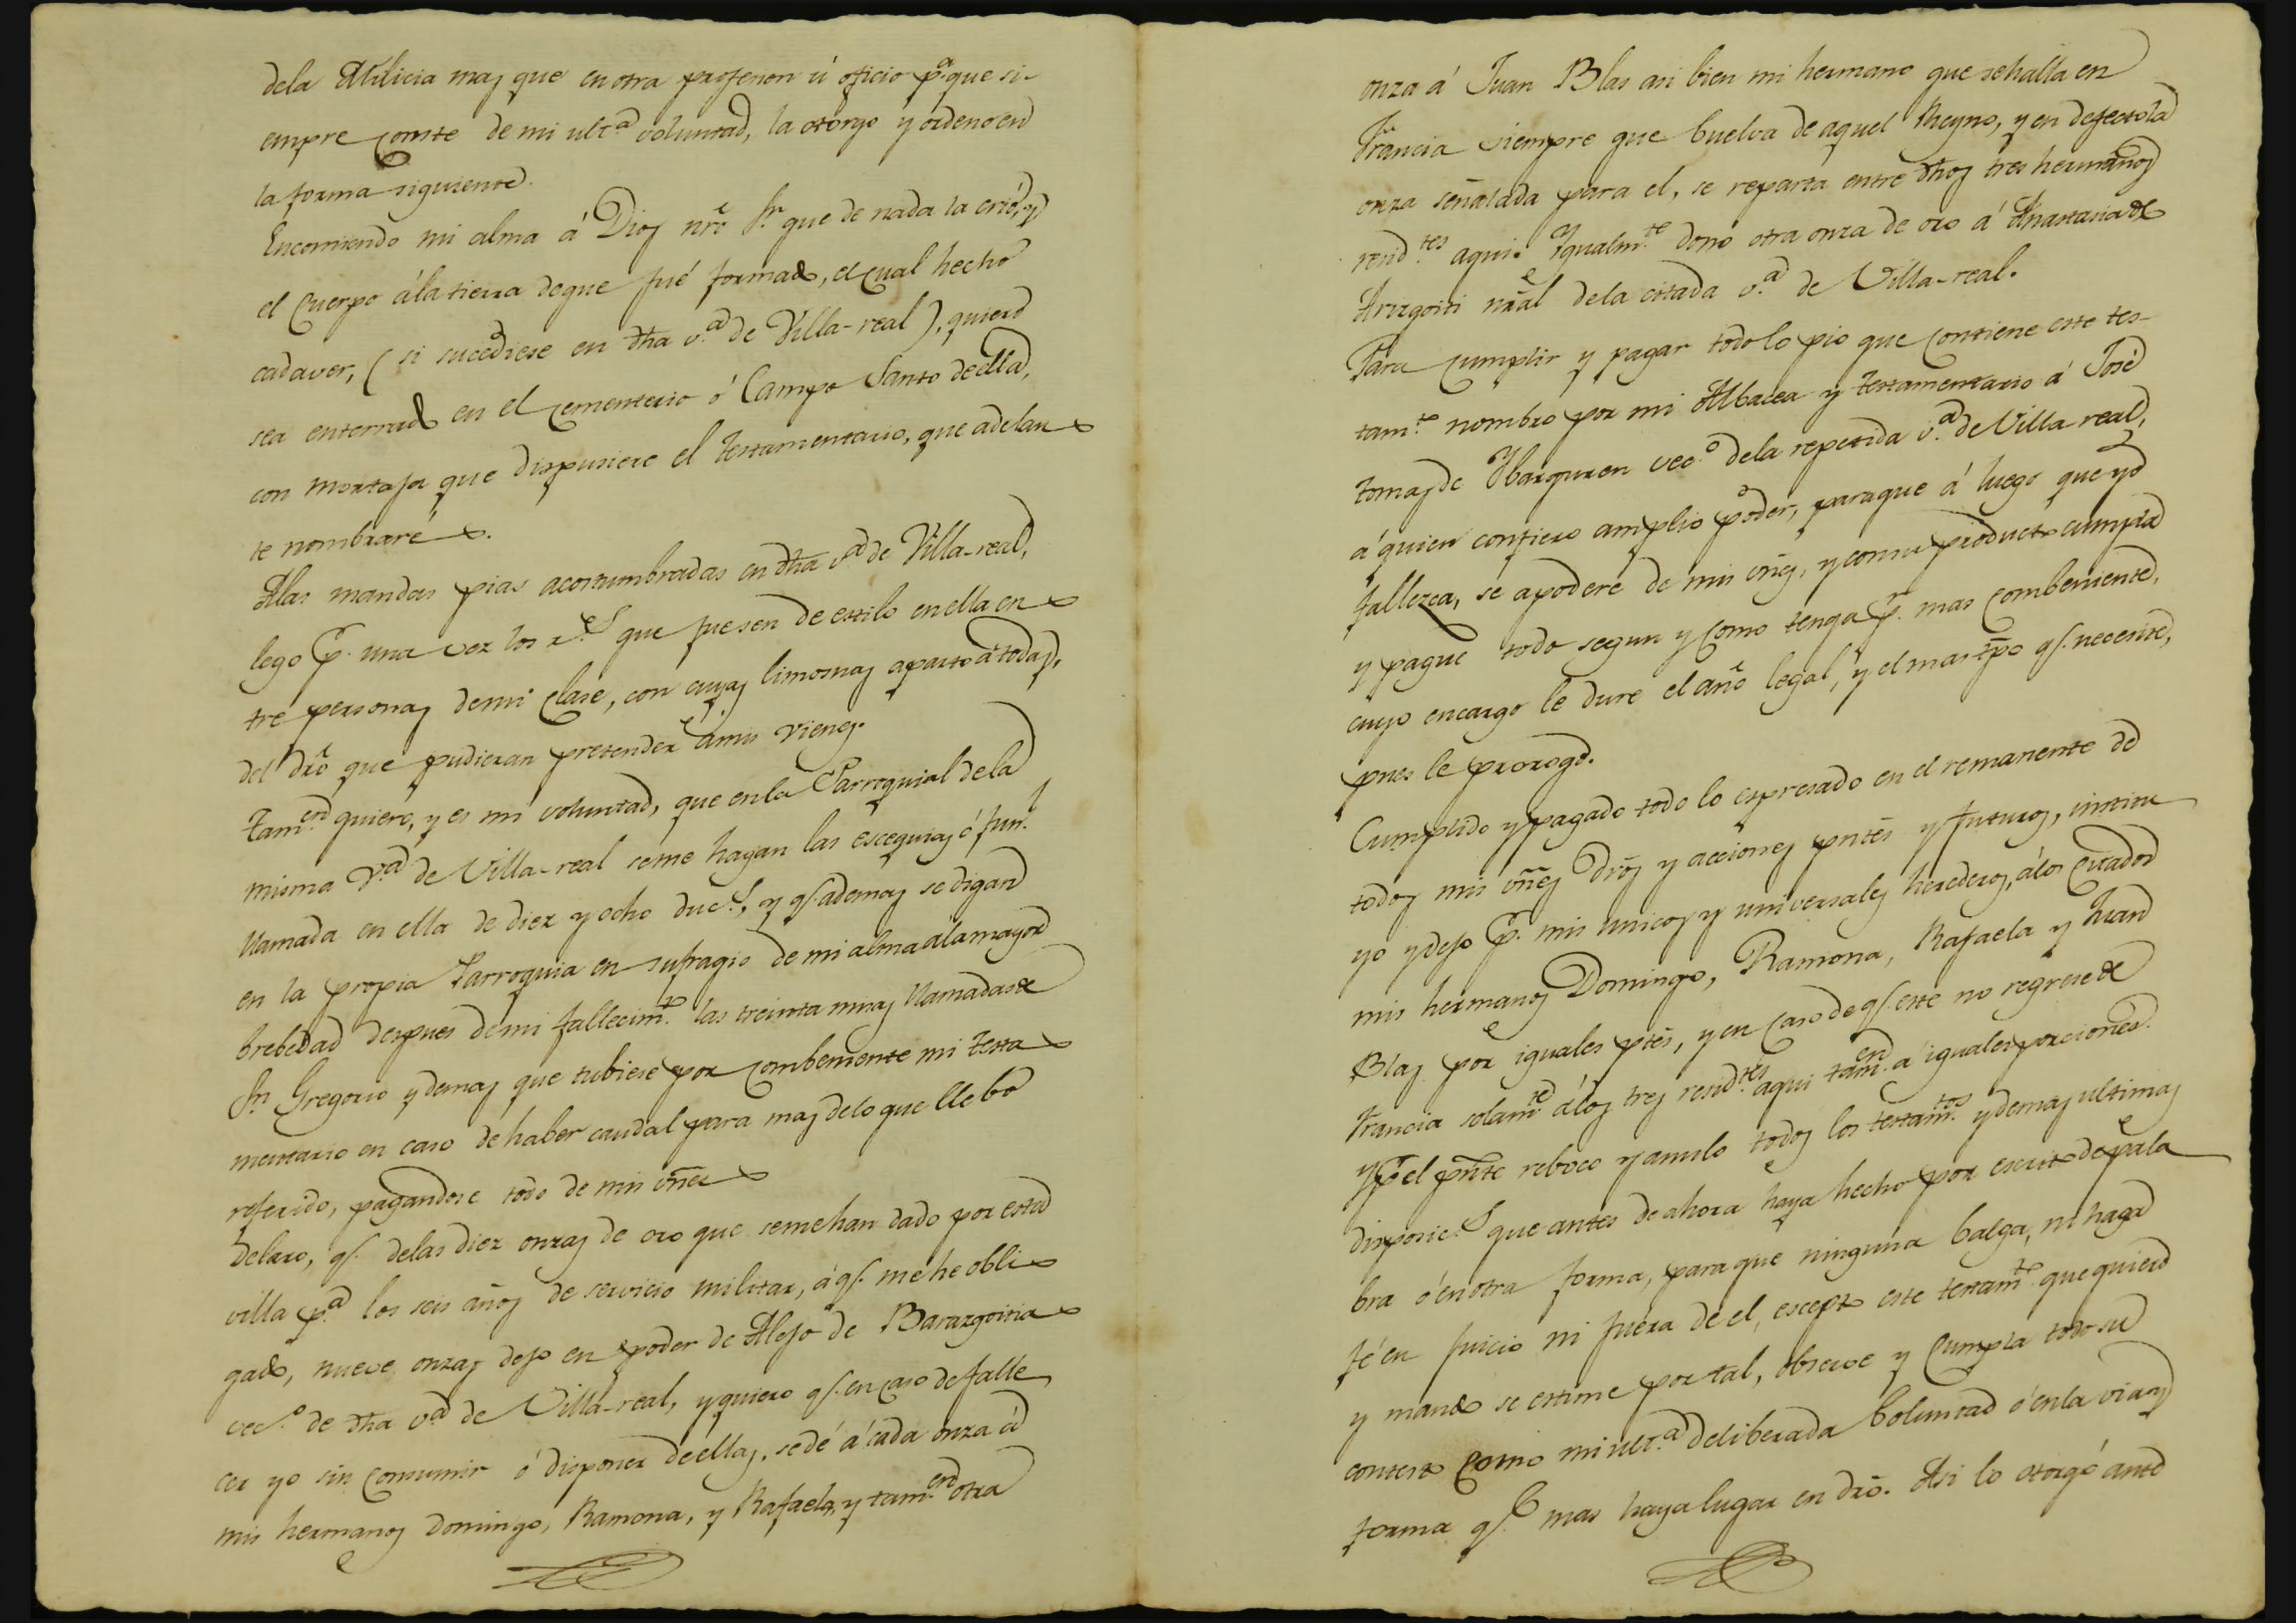 dela Milicia mas que en otra profesion ú oficio p.ª que si-
empre conste de mi ult.ª voluntad, la otorgo y ordeno en
la forma siguiente.
Encomiendo mi alma á Dios nr̃o S.r que de nada la crió, y
el cuerpo á la tierra de que fué formado, el cual hecho
cadaver, (si sucediese en dh̃a v.ª de Villa-real), quiero
sea enterrado en el cementerio ó Campo Santo de ella,
con mortaja que dispusiere el testamentario, que adelan
te nombraré.
A las mandas pias acostumbradas en dh̃a v.ª de Villa-real,
lego p.r una vez los r.s que fuesen de estilo en ella en
tre personas de mi clase, con cuyas limosnas aparto á todas,
del dr̃o que pudieran pretender á mis vienes.
Tam.en quiero, y es mi voluntad, que en la Parroquial de la
misma v.ª de Villa-real se me hagan las escequias ó fun.n
llamada en ella de diez y ocho duc.s, y q.e ademas se digan
en la propia Parroquia en sufragio de mi alma á la mayor
brebedad despues de mi fallecim.to las treinta misas llamadas de
S.n Gregorio y demas que tubiese por combeniente mi testa
mentario en caso de haber caudal para mas de lo que llebo
referido, pagandose todo de mis vñes
Declaro, q.e delas diez onzas de oro que se me han dado por esta
villa p.ª los seis años de servicio militar, á q.e me he obli
gado, nueve onzas dejo en poder de Alejo de Barazgoitia
vec.o de dh̃a v.ª de Villa-real, y quiero q.e en caso de falle
cer yo sin consumir ó disponer de ellas, se dé á cada onza á
mis hermanos Domingo, Ramona, y Rafaela, y tam.en otra
onza á Juan Blas asi bien mi hermano que se halla en
Francia siempre que buelva de aquel Reyno, y en defecto la
onza señalada para el, se reparta entre dh̃os tres hermanos
resid.tes aqui. Igualm.te dono otra onza de oro á Anastasia de
Arizgoiti nr̃al dela citada v.ª de Villa-real.
Para cumplir y pagar todo lo pio que contiene este tes-
tam.to nombro por mi Albacea y testamentario á José
tomas de Ybarguren vec.o dela repetida v.ª de Villa-real,
á quien confiero amplio poder, para que á luego que yo
fallezca, se apodere de mis vñes, y con su producto cumpla
y pague todo segun y como tenga p.r mas combeniente,
cuyo encargo le dure el año legal, y el mas tp̃o q.e necesite,
pues le prorogo.
Cumplido y pagado todo lo espresado en el remanente de
todos mis vñes dr̃os y acciones pntẽs y futuros, institu
yo y dejo p.r mis unicos y universales herederos, á los citados
mis hermanos Domingo, Ramona, Rafaela y Juan
Blas por iguales ptẽs, y en caso de q.e este no regrese de
Francia solam.te á los tres resid.tes aqui tam.en á iguales porciones.
y p.r el pñte reboco y anulo todos los testam.tos y demas ultimas
disposic.s que antes de ahora haya hecho por escrito de pala
bra ó en otra forma, para que ninguna balga, ni haga
fé en juicio ni fuera de el, escepto este testam.to que quiero
y mando se estime por tal, observe y cumpla todo su
contesto como mi ult.ª deliberada boluntad ó en la via y
forma q.e mas haya lugar en dr̃o. Asi lo otorgó ante